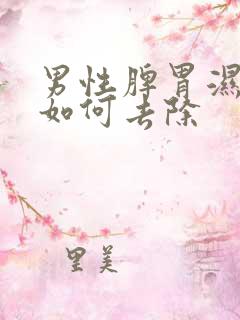 男性脾胃濕
如何去除
里美